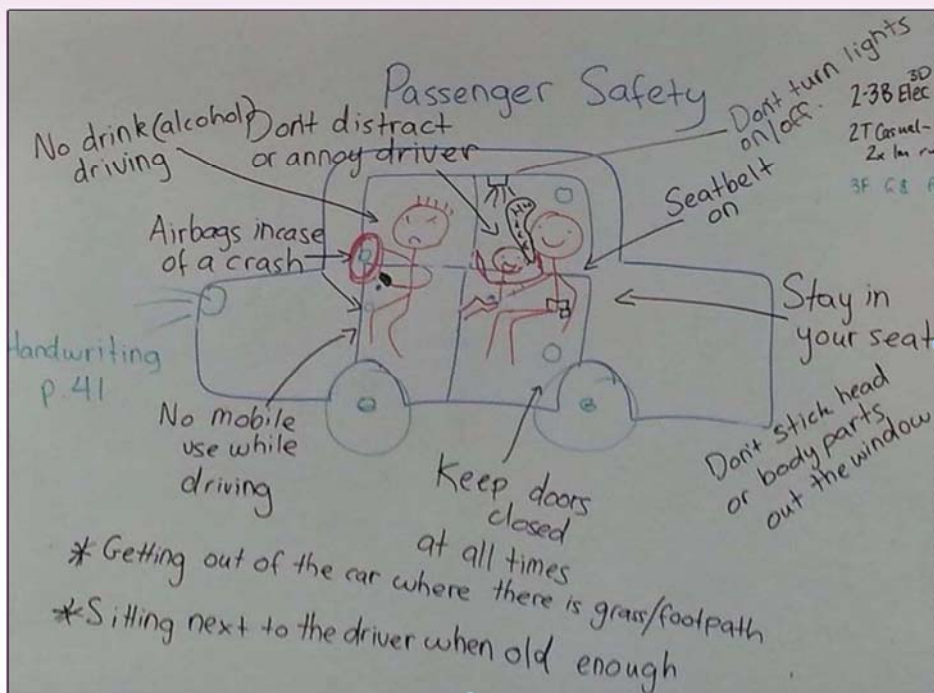 Passenger Safety
No drink (alcohol)
driving
Don't distract
or annoy driver
Don't turn lights
on/off.
3D
2-3B Elec
2T Casual-
2x 1m
3F G8
Airbags incase
of a crash
Seatbelt
on
Stay in
your seat
Handwriting
p.41
No mobile
use while
driving
Keep doors
closed
at all times
Don't stick head
or body parts
out the window
* Getting out of the car where there is grass/footpath
* Sitting next to the driver when old enough